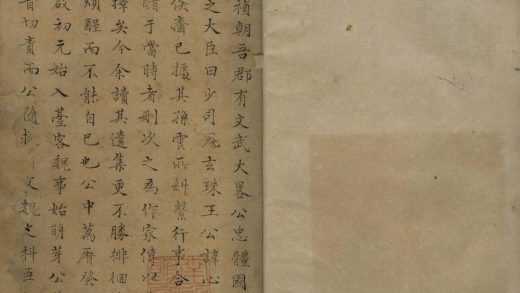 禎朝吾郡有文武大畧公忠體國
之大臣曰少司冠玄珠王公諱心
侯齋已據其孫雲所糾繫行事合
睹于當時者刪次之為作家傳以
擇矣今余讀其遺集更不勝徘徊
煩酲而不能自已也公中萬厤癸
啟初元始入臺客魏事始萌芽公
首切責而公隨 文魏之科臣